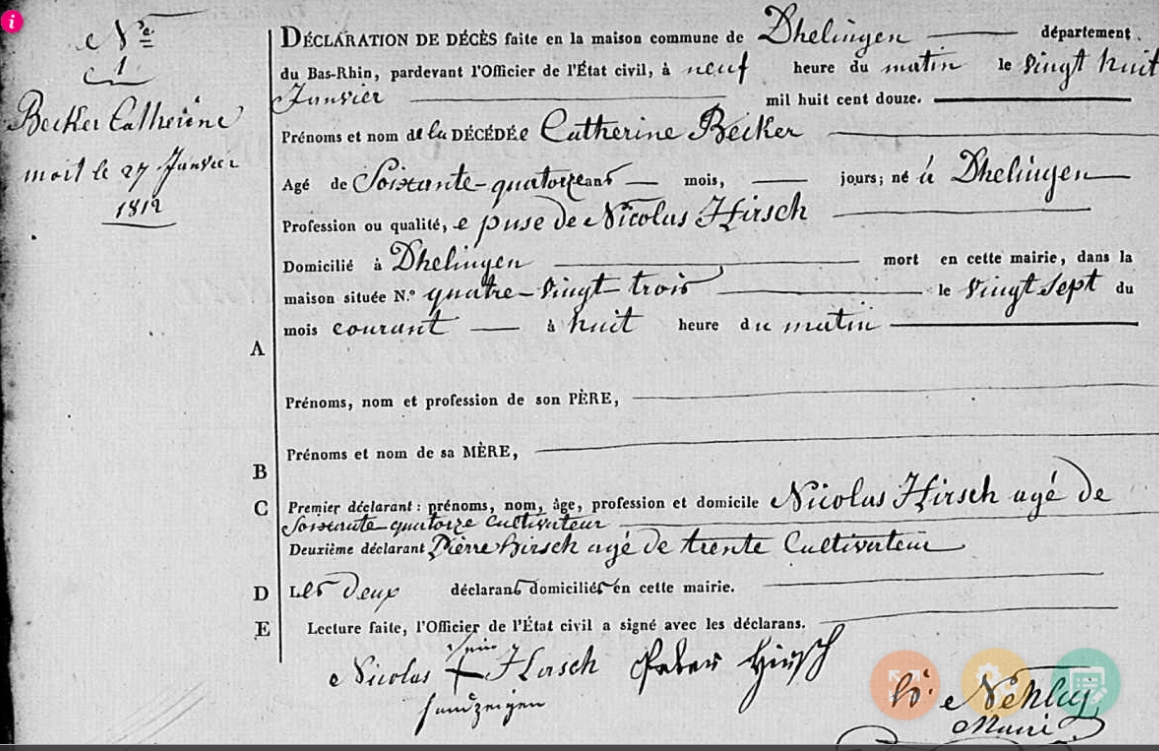 Nº
1
Becker Catherine
mort le 27 Janvier
1812
DÉCLARATION DE DÉCÈS faite en la maison commune de Dhelingen département
du Bas-Rhin, pardevant l'Officier de l'État civil, à neuf heure du matin le vingt huit
Janvier mil huit cent douze.
Prénoms et nom de la DÉCÉDÉe Catherine Becker
Agé de Soixante-quatorze ans mois, jours; né à Dhelingen
Profession ou qualité, epuse de Nicolas Hirsch
Domicilié à Dhelingen mort en cette mairie, dans la
maison située N.º quatre-vingt trois le vingt sept du
mois courant à huit heure du matin
A
Prénoms, nom et profession de son PÈRE,
Prénoms et nom de sa MÈRE,
B
C Premier déclarant : prénoms, nom, âge, profession et domicile Nicolas Hirsch agé de
Soixante quatorze Cultivateur
Deuxième déclarant Pierre Hirsch agé de trente Cultivateur
D Les deux déclarans domiciliés en cette mairie.
E Lecture faite, l'Officier de l'État civil a signé avec les déclarans.
sein
Nicolas + Hirsch Peter Hirsch
handzeigen